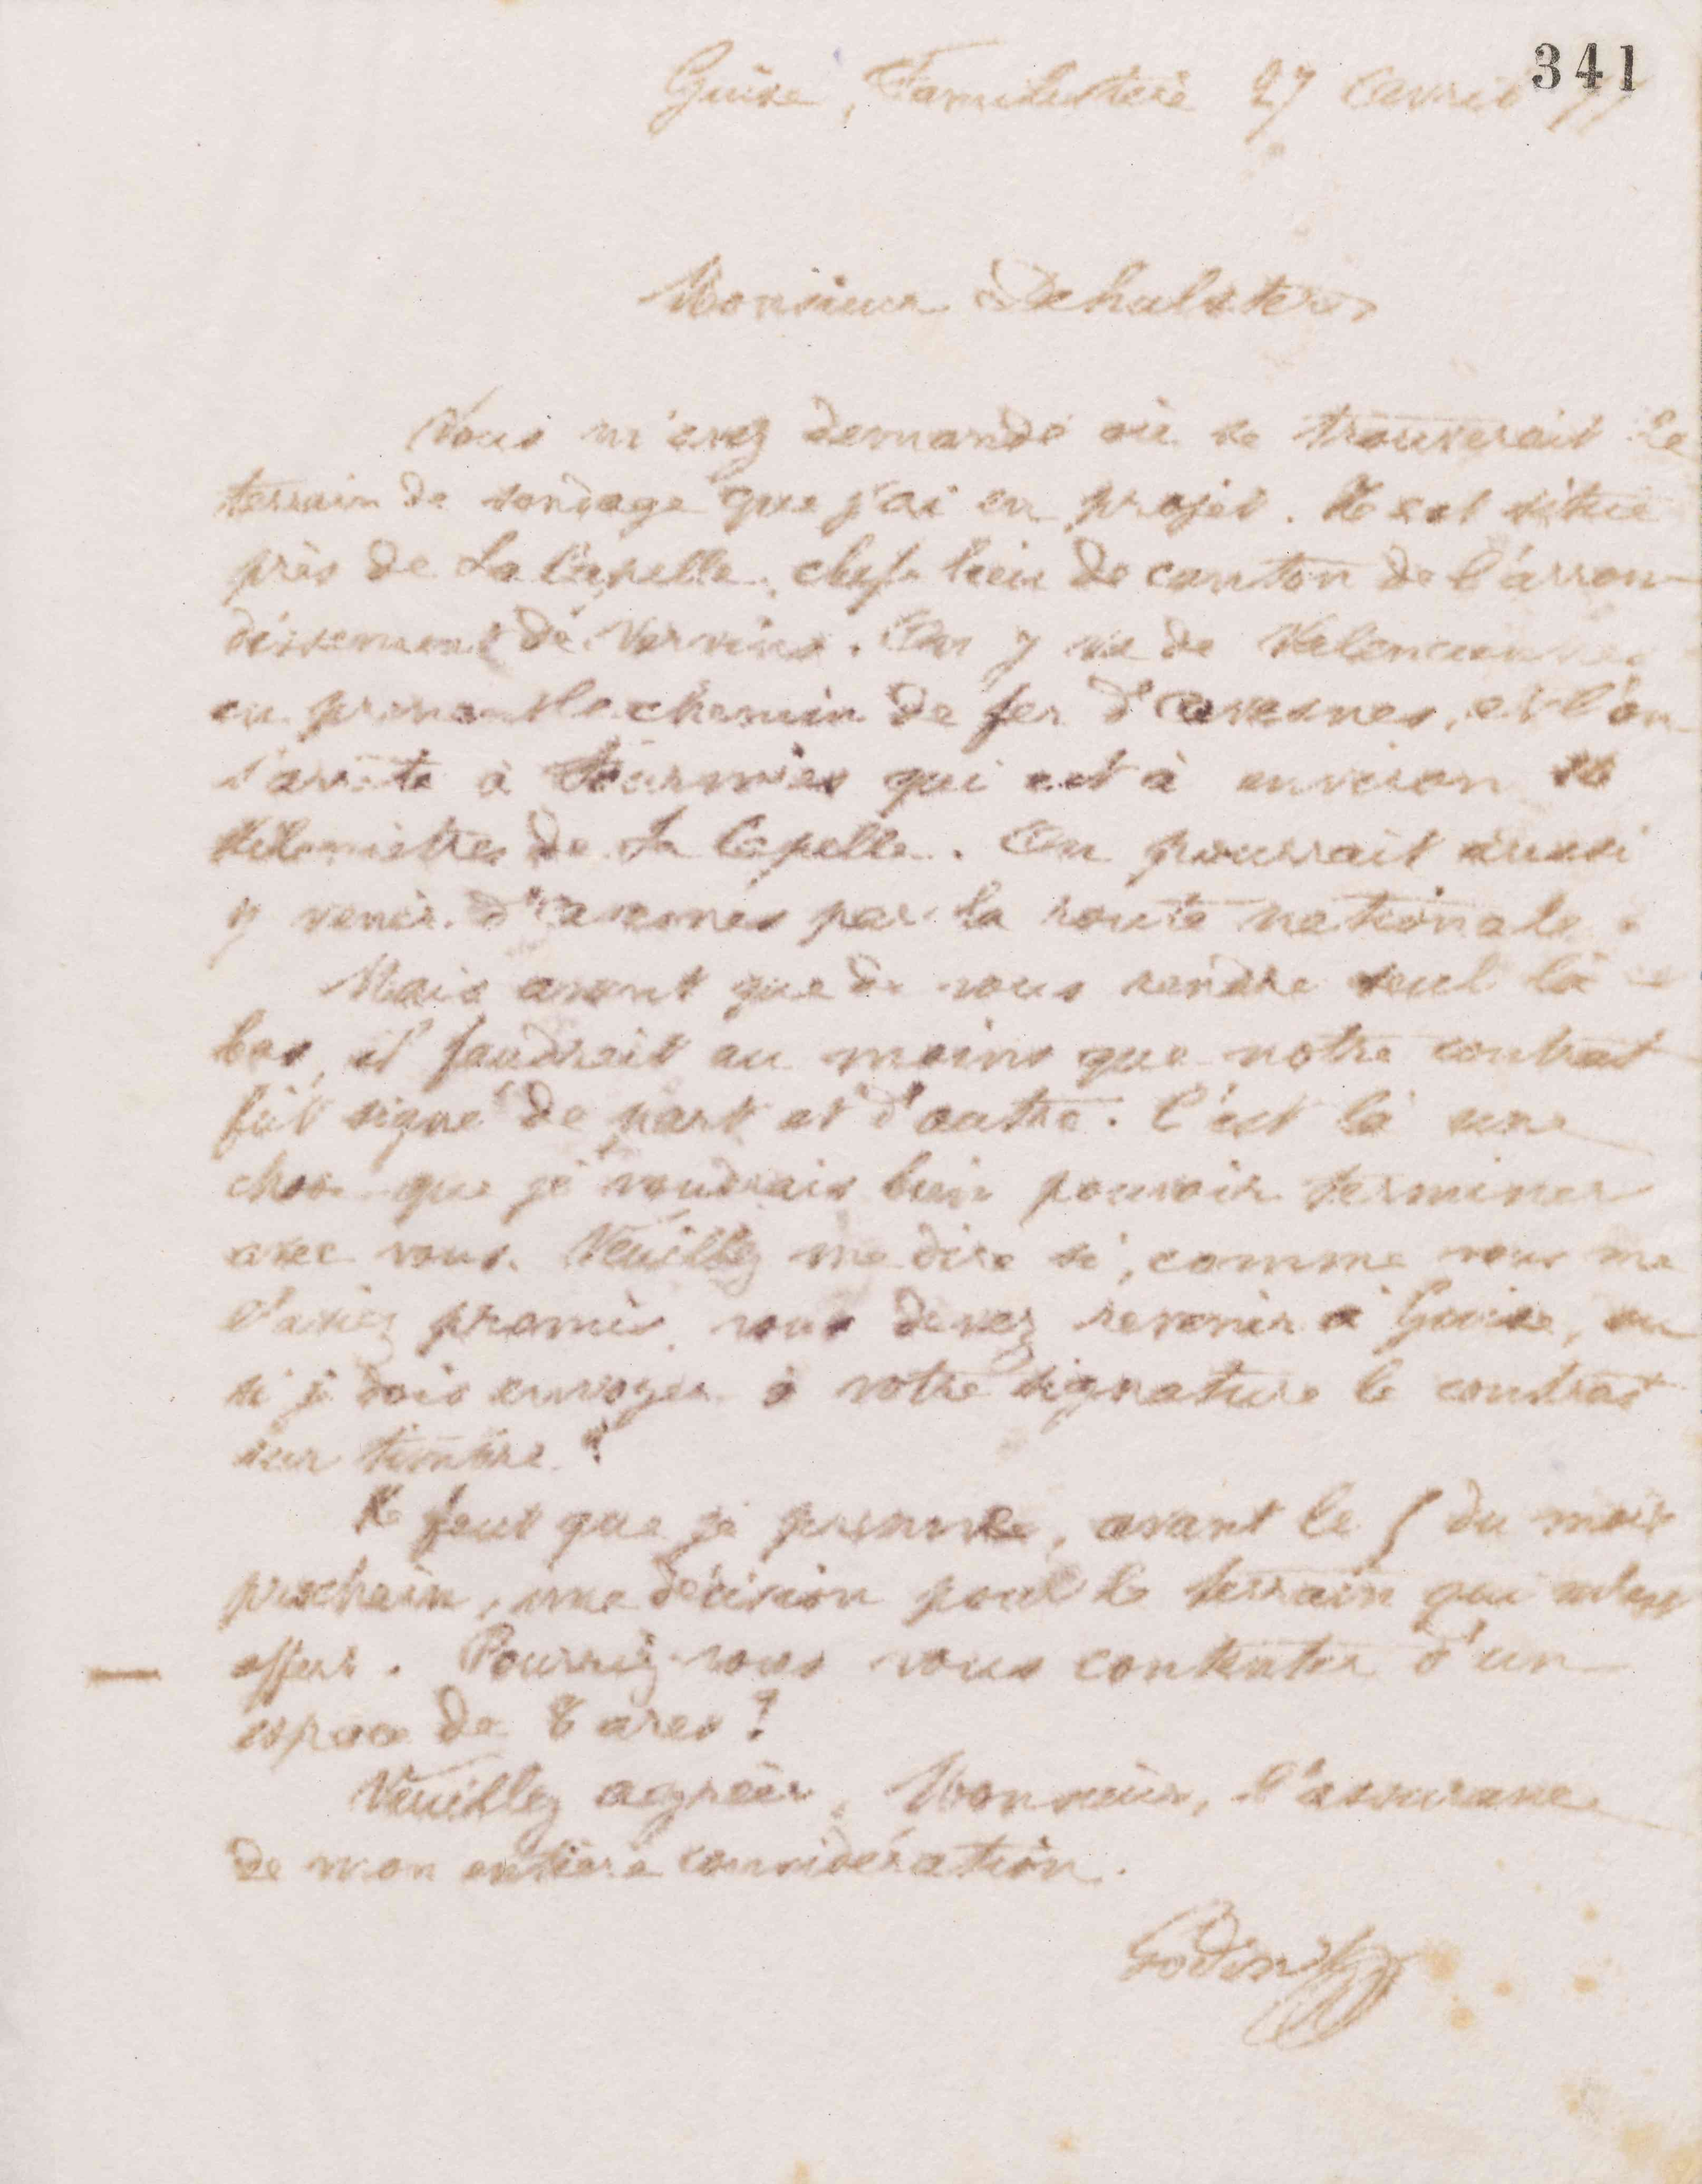 341
Guise, Familistère 27 avril 77
Monsieur Dehulster
Vous m'avez demandé où se trouverait le
terrain de sondage que j'ai en projet. Il est situé
près de La Capelle, chef-lieu de canton de l'arron-
dissement de Vervins. On y va de Valenciennes
en prenant le chemin de fer d'Avesnes, et l'on
s'arrête à Fourmies qui est à environ
kilomètres de La Capelle. On pourrait aussi
y venir d'Avesnes par la route nationale.
Mais avant que de vous rendre seul là-
bas, il faudrait au moins que notre contrat
fût signé de part et d'autre. C'est là une
chose que je voudrais bien pouvoir terminer
avec vous. Veuillez me dire si, comme vous me
l'aviez promis, vous devez revenir à Guise, ou
si je dois envoyer à votre signature le contrat
sur timbre ?
Il faut que je prenne, avant le 5 du mois
prochain, une décision pour le terrain qui m'est
offert. Pourriez-vous vous contenter d'un
espace de 8 ares ?
Veuillez agréer, Monsieur, l'assurance
de mon entière considération.
Godin